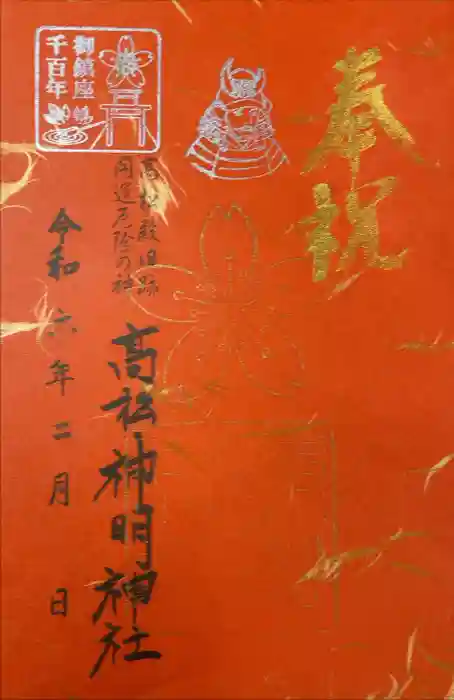 奉祝
御鎮座
千百年
高松殿旧跡
開運厄除の社
高松神明神社
令和六年二月 日